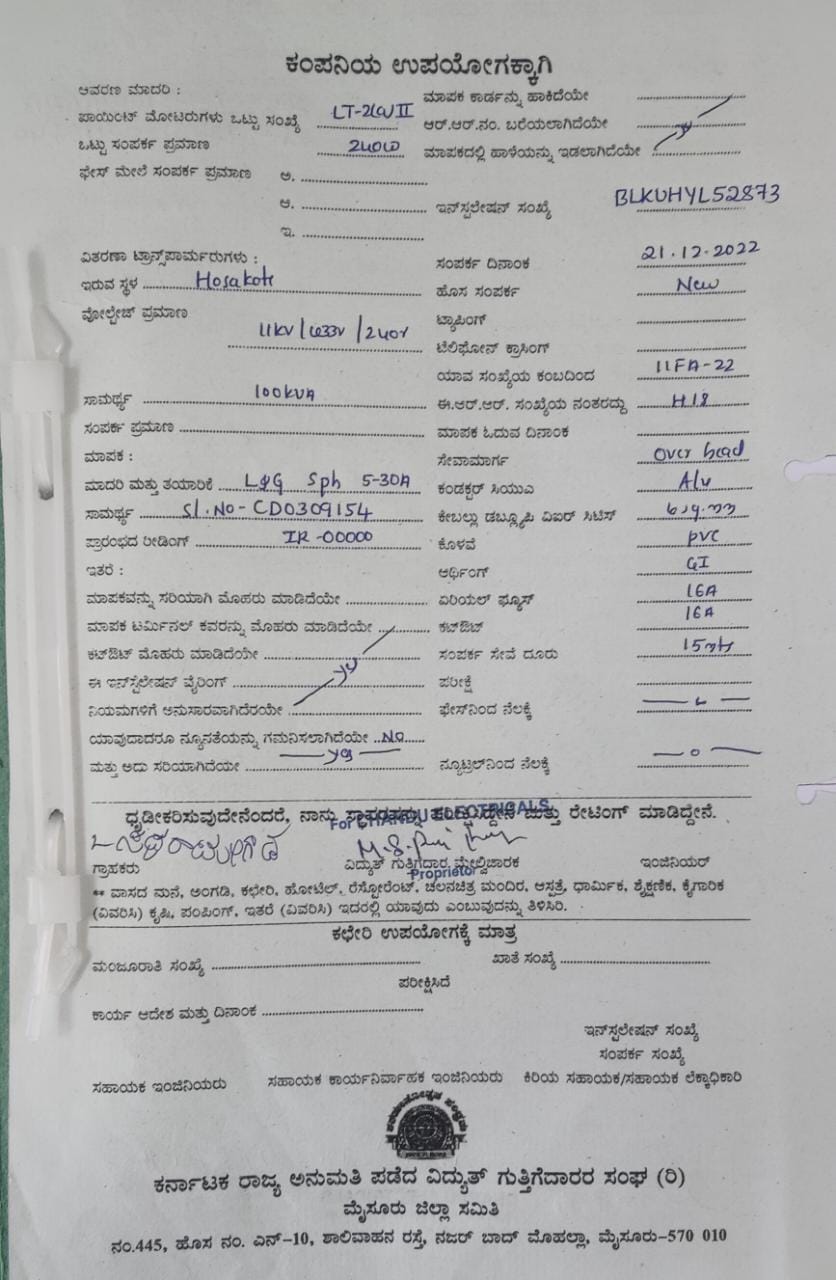 ಕಂಪನಿಯ ಉಪಯೋಗಕ್ಕಾಗಿ
ಆವರಣ ಮಾದರಿ :
ಮಾಪಕ ಕಾರ್ಡನ್ನು ಹಾಕಿದೆಯೇ
ಪಾಯಿಂಟ್ ಮೋಟರುಗಳು ಒಟ್ಟು ಸಂಖ್ಯೆ
ಆರ್.ಆರ್.ನಂ. ಬರೆಯಲಾಗಿದೆಯೇ
ಒಟ್ಟು ಸಂಪರ್ಕ ಪ್ರಮಾಣ 2400
ಮಾಪಕದಲ್ಲಿ ಹಾಳೆಯನ್ನು ಇಡಲಾಗಿದೆಯೇ
ಫೇಸ್ ಮೇಲೆ ಸಂಪರ್ಕ ಪ್ರಮಾಣ ಅ.
ಆ.
ಇನ್‌ಸ್ಟಲೇಷನ್ ಸಂಖ್ಯೆ BLKUHYL52873
ಇ.
ವಿತರಣಾ ಟ್ರಾನ್ಸ್‌ಪಾರ್ಮರುಗಳು :
ಸಂಪರ್ಕ ದಿನಾಂಕ 21.12.2022
ಇರುವ ಸ್ಥಳ Hosakote
ಹೊಸ ಸಂಪರ್ಕ New
ವೋಲ್ಟೇಜ್ ಪ್ರಮಾಣ 11kv/433v/240v
ಟ್ಯಾಪಿಂಗ್
ಟೆಲಿಫೋನ್ ಕ್ರಾಸಿಂಗ್
ಯಾವ ಸಂಖ್ಯೆಯ ಕಂಬದಿಂದ 11FA-22
ಸಾಮರ್ಥ್ಯ 100kVA
ಈ.ಆರ್.ಆರ್. ಸಂಖ್ಯೆಯ ನಂತರದ್ದು H18
ಸಂಪರ್ಕ ಪ್ರಮಾಣ
ಮಾಪಕ ಓದುವ ದಿನಾಂಕ
ಮಾಪಕ :
ಸೇವಾಮಾರ್ಗ Over head
ಮಾದರಿ ಮತ್ತು ತಯಾರಿಕೆ L&G Sph 5-30A
ಕಂಡಕ್ಟರ್ ಸಿಯುಎ Alu
ಸಾಮರ್ಥ್ಯ Sl.No-CD0309154
ಕೇಬಲ್ಲು ಡಬ್ಲ್ಯೂಪಿ ವಿಐರ್ ಸಿಟಿಸ್
ಪ್ರಾರಂಭದ ರೀಡಿಂಗ್ IR-00000
ಕೊಳವೆ PVC
ಇತರೆ :
ಆರ್ಥಿಂಗ್ GI
ಮಾಪಕವನ್ನು ಸರಿಯಾಗಿ ಮೊಹರು ಮಾಡಿದೆಯೇ
ಏರಿಯಲ್ ಫ್ಯೂಸ್ 16A
ಮಾಪಕ ಟರ್ಮಿನಲ್ ಕವರನ್ನು ಮೊಹರು ಮಾಡಿದೆಯೇ
ಕಟ್‌ಔಟ್ 16A
ಕಟ್‌ಔಟ್ ಮೊಹರು ಮಾಡಿದೆಯೇ
ಸಂಪರ್ಕ ಸೇವೆ ದೂರು 15mts
ಈ ಇನ್‌ಸ್ಟೆಲೇಷನ್ ವೈರಿಂಗ್
ಪರೀಕ್ಷೆ
ನಿಯಮಗಳಿಗೆ ಅನುಸಾರವಾಗಿದೆರಯೇ
ಫೇಸ್‌ನಿಂದ ನೆಲಕ್ಕೆ
ಯಾವುದಾದರೂ ನ್ಯೂನತೆಯನ್ನು ಗಮನಿಸಲಾಗಿದೆಯೇ No
ಮತ್ತು ಅದು ಸರಿಯಾಗಿದೆಯೇ
ನ್ಯೂಟ್ರಲ್‌ನಿಂದ ನೆಲಕ್ಕೆ — 0 —
ಧೃಡೀಕರಿಸುವುದೇನೆಂದರೆ, ನಾನು ಮತ್ತು ರೇಟಿಂಗ್ ಮಾಡಿದ್ದೇನೆ.
For CHANDU ELECTRICALS
ಗ್ರಾಹಕರು ವಿದ್ಯುತ್ ಗುತ್ತಿಗೆದಾರ, ಮೇಲ್ವಿಚಾರಕ ಇಂಜಿನಿಯರ್
Proprietor
** ವಾಸದ ಮನೆ, ಅಂಗಡಿ, ಕಛೇರಿ, ಹೋಟೆಲ್, ರೆಸ್ಟೋರೆಂಟ್, ಚಲನಚಿತ್ರ ಮಂದಿರ, ಆಸ್ಪತ್ರೆ, ಧಾರ್ಮಿಕ, ಶೈಕ್ಷಣಿಕ, ಕೈಗಾರಿಕ
(ವಿವರಿಸಿ) ಕೃಷಿ, ಪಂಪಿಂಗ್, ಇತರೆ (ವಿವರಿಸಿ) ಇದರಲ್ಲಿ ಯಾವುದು ಎಂಬುವುದನ್ನು ತಿಳಿಸಿರಿ.
ಕಛೇರಿ ಉಪಯೋಗಕ್ಕೆ ಮಾತ್ರ
ಮಂಜೂರಾತಿ ಸಂಖ್ಯೆ ಖಾತೆ ಸಂಖ್ಯೆ
ಪರೀಕ್ಷಿಸಿದೆ
ಕಾರ್ಯ ಆದೇಶ ಮತ್ತು ದಿನಾಂಕ
ಇನ್‌ಸ್ಟಲೇಷನ್ ಸಂಖ್ಯೆ
ಸಂಪರ್ಕ ಸಂಖ್ಯೆ
ಸಹಾಯಕ ಇಂಜಿನಿಯರು ಸಹಾಯಕ ಕಾರ್ಯನಿರ್ವಾಹಕ ಇಂಜಿನಿಯರು ಕಿರಿಯ ಸಹಾಯಕ/ಸಹಾಯಕ ಲೆಕ್ಕಾಧಿಕಾರಿ
ಕರ್ನಾಟಕ ರಾಜ್ಯ ಅನುಮತಿ ಪಡೆದ ವಿದ್ಯುತ್ ಗುತ್ತಿಗೆದಾರರ ಸಂಘ (ರಿ)
ಮೈಸೂರು ಜಿಲ್ಲಾ ಸಮಿತಿ
ನಂ.445, ಹೊಸ ನಂ. ಎನ್-10, ಶಾಲಿವಾಹನ ರಸ್ತೆ, ನಜರ್ ಬಾದ್ ಮೊಹಲ್ಲಾ, ಮೈಸೂರು-570 010